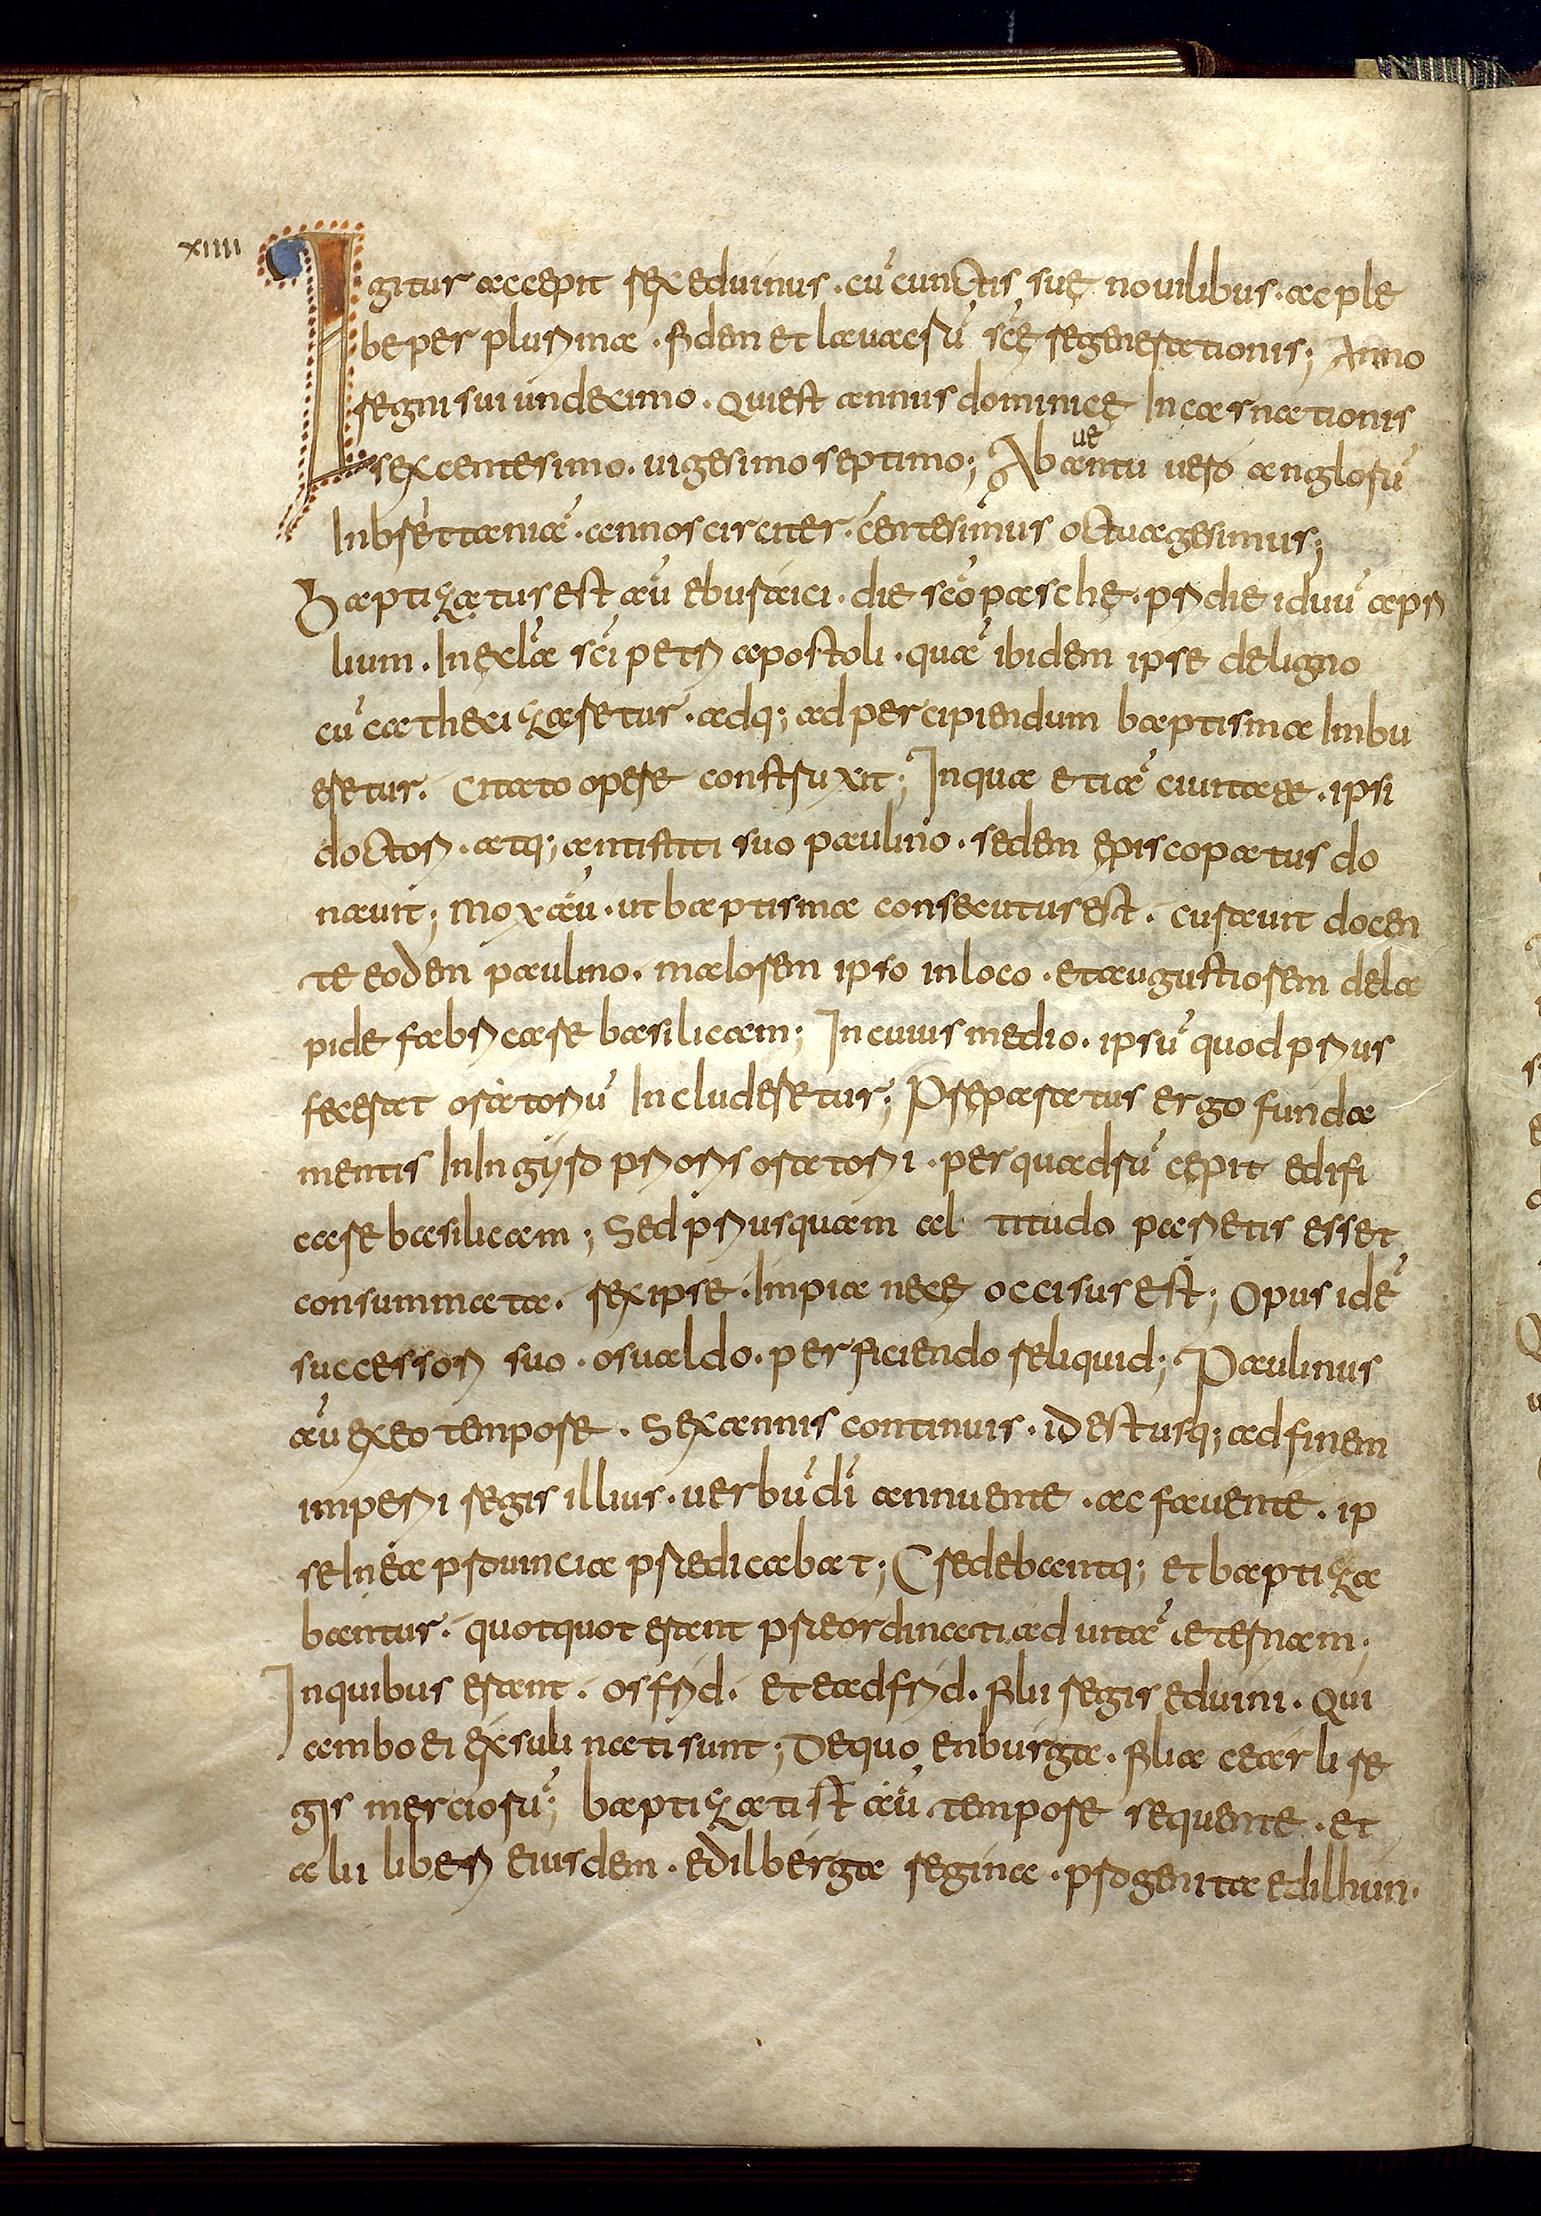 xiiii
Igitur accepit rex eduinus · cū cunctis suę nouilibus · ac ple
be per plurima · fidem et lauacrū scę regenerationis; Anno
regni sui undecimo · qui est annus dominicę Incarnationis
sexcentesimo · uigesimo septimo; Ab antu uero anglorū
ue
In brettaniā · annos circiter · centesimus octuagesimus;
Baptizatus est aū eburaici · die scō paschę · pridie iduū apri
lium · In eclā sci petri apostoli · quā ibidem ipse de ligno
cū cathecizaretur · adq; ad percipiendum baptisma Imbu
eretur · citato opere construxit; In qua etiā ciuitate · ipsi
doctori · atq; antistiti suo paulino · sedem episcopatus do
nauit; mox aū · ut baptisma consecutus est · curauit docen
te eodem paulino · malorem ipso in loco · et augustiorem de la
pide fabricare basilicam; In cuius medio · ipsū quod prius
fecerat oratoriū Includeretur; Preparatus ergo funda
mentis In Ingyro prioris oratorii · per quadrū cępit edifi
care basilicam; Sed priusquam al titudo parietis esset
consummata · rex ipse · Impia necę occisus est; Opus idē
successori suo · osualdo · perficiendo reliquid; Paulinus
aū ex eo tempore · Sex annis continuis · id est usq; ad finem
imperii regis illius · uerbū dī annuente · ac fauente · ip
se In ea prouincia predicabat; Credebantq; et baptiza
bantur · quotquot erant preordinati ad uitā eternam;
In quibus erant · osfrid · et eadfrid · filii regis eduini · qui
ambo ei exsuli nati sunt; De quoenburga · filia cearli re
gis merciorū; baptizati st aū tempore sequente · et
alii liberi eiusdem · edilberga regina · progenita edilhun ·